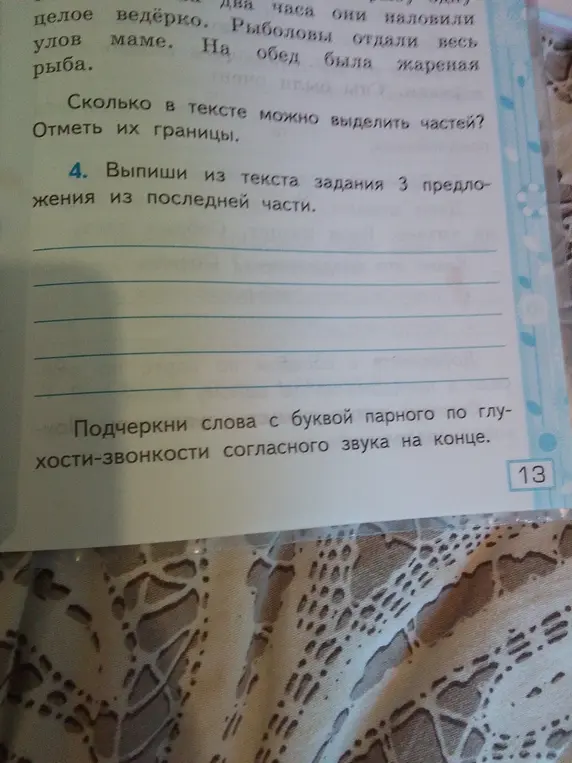 два часа они наловили
целое ведёрко. Рыболовы отдали весь
улов маме. На обед была жареная
рыба.
Сколько в тексте можно выделить частей?
Отметь их границы.
4. Выпиши из текста задания 3 предло-
жения из последней части.
Подчеркни слова с буквой парного по глу-
хости-звонкости согласного звука на конце.
13